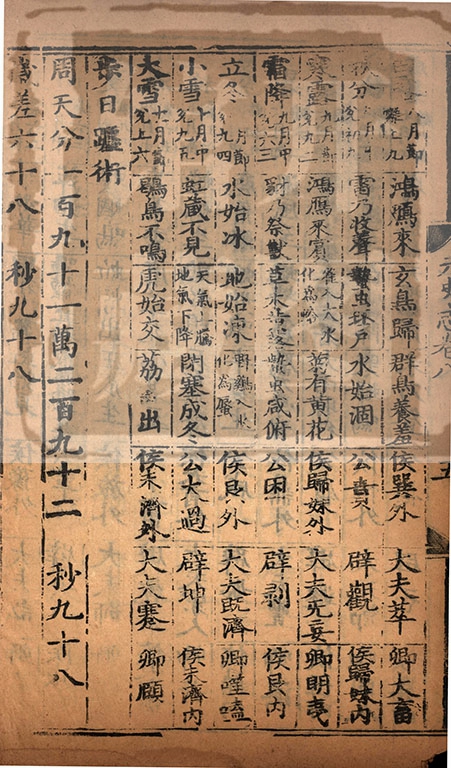 志卷八
五
八月節 鴻鴈來 玄鳥歸 群鳥養羞 侯巽外 大夫萃 卿大畜
秋分 雷乃收聲 蟄蟲坏戶 水始涸 公賁 辟觀 侯歸妹内
寒露 九月節 兌九二 鴻鴈來賓 雀入大水化爲蛤 菊有黃花 侯歸妹外 大夫无妄 卿明夷
霜降 九月中 六三 豺乃祭獸 草木黃落 蟄蟲咸俯 公困 辟剝 侯艮内
立冬 月節 九四 水始冰 地始凍 野雞入水化爲蜃 侯艮外 大夫既濟 卿噬嗑
小雪 十月中 兌九五 虹藏不見 天氣上騰地氣下降 閉塞成冬 公大過 辟坤 侯未濟内
大雪 十一月節 兌上六 鶡鳥不鳴 虎始交 荔挺出 侯未濟外 大夫蹇 卿頤
步日躔術
周天分一百九十一萬二百九十二 秒九十八
歲差六十八 秒九十八